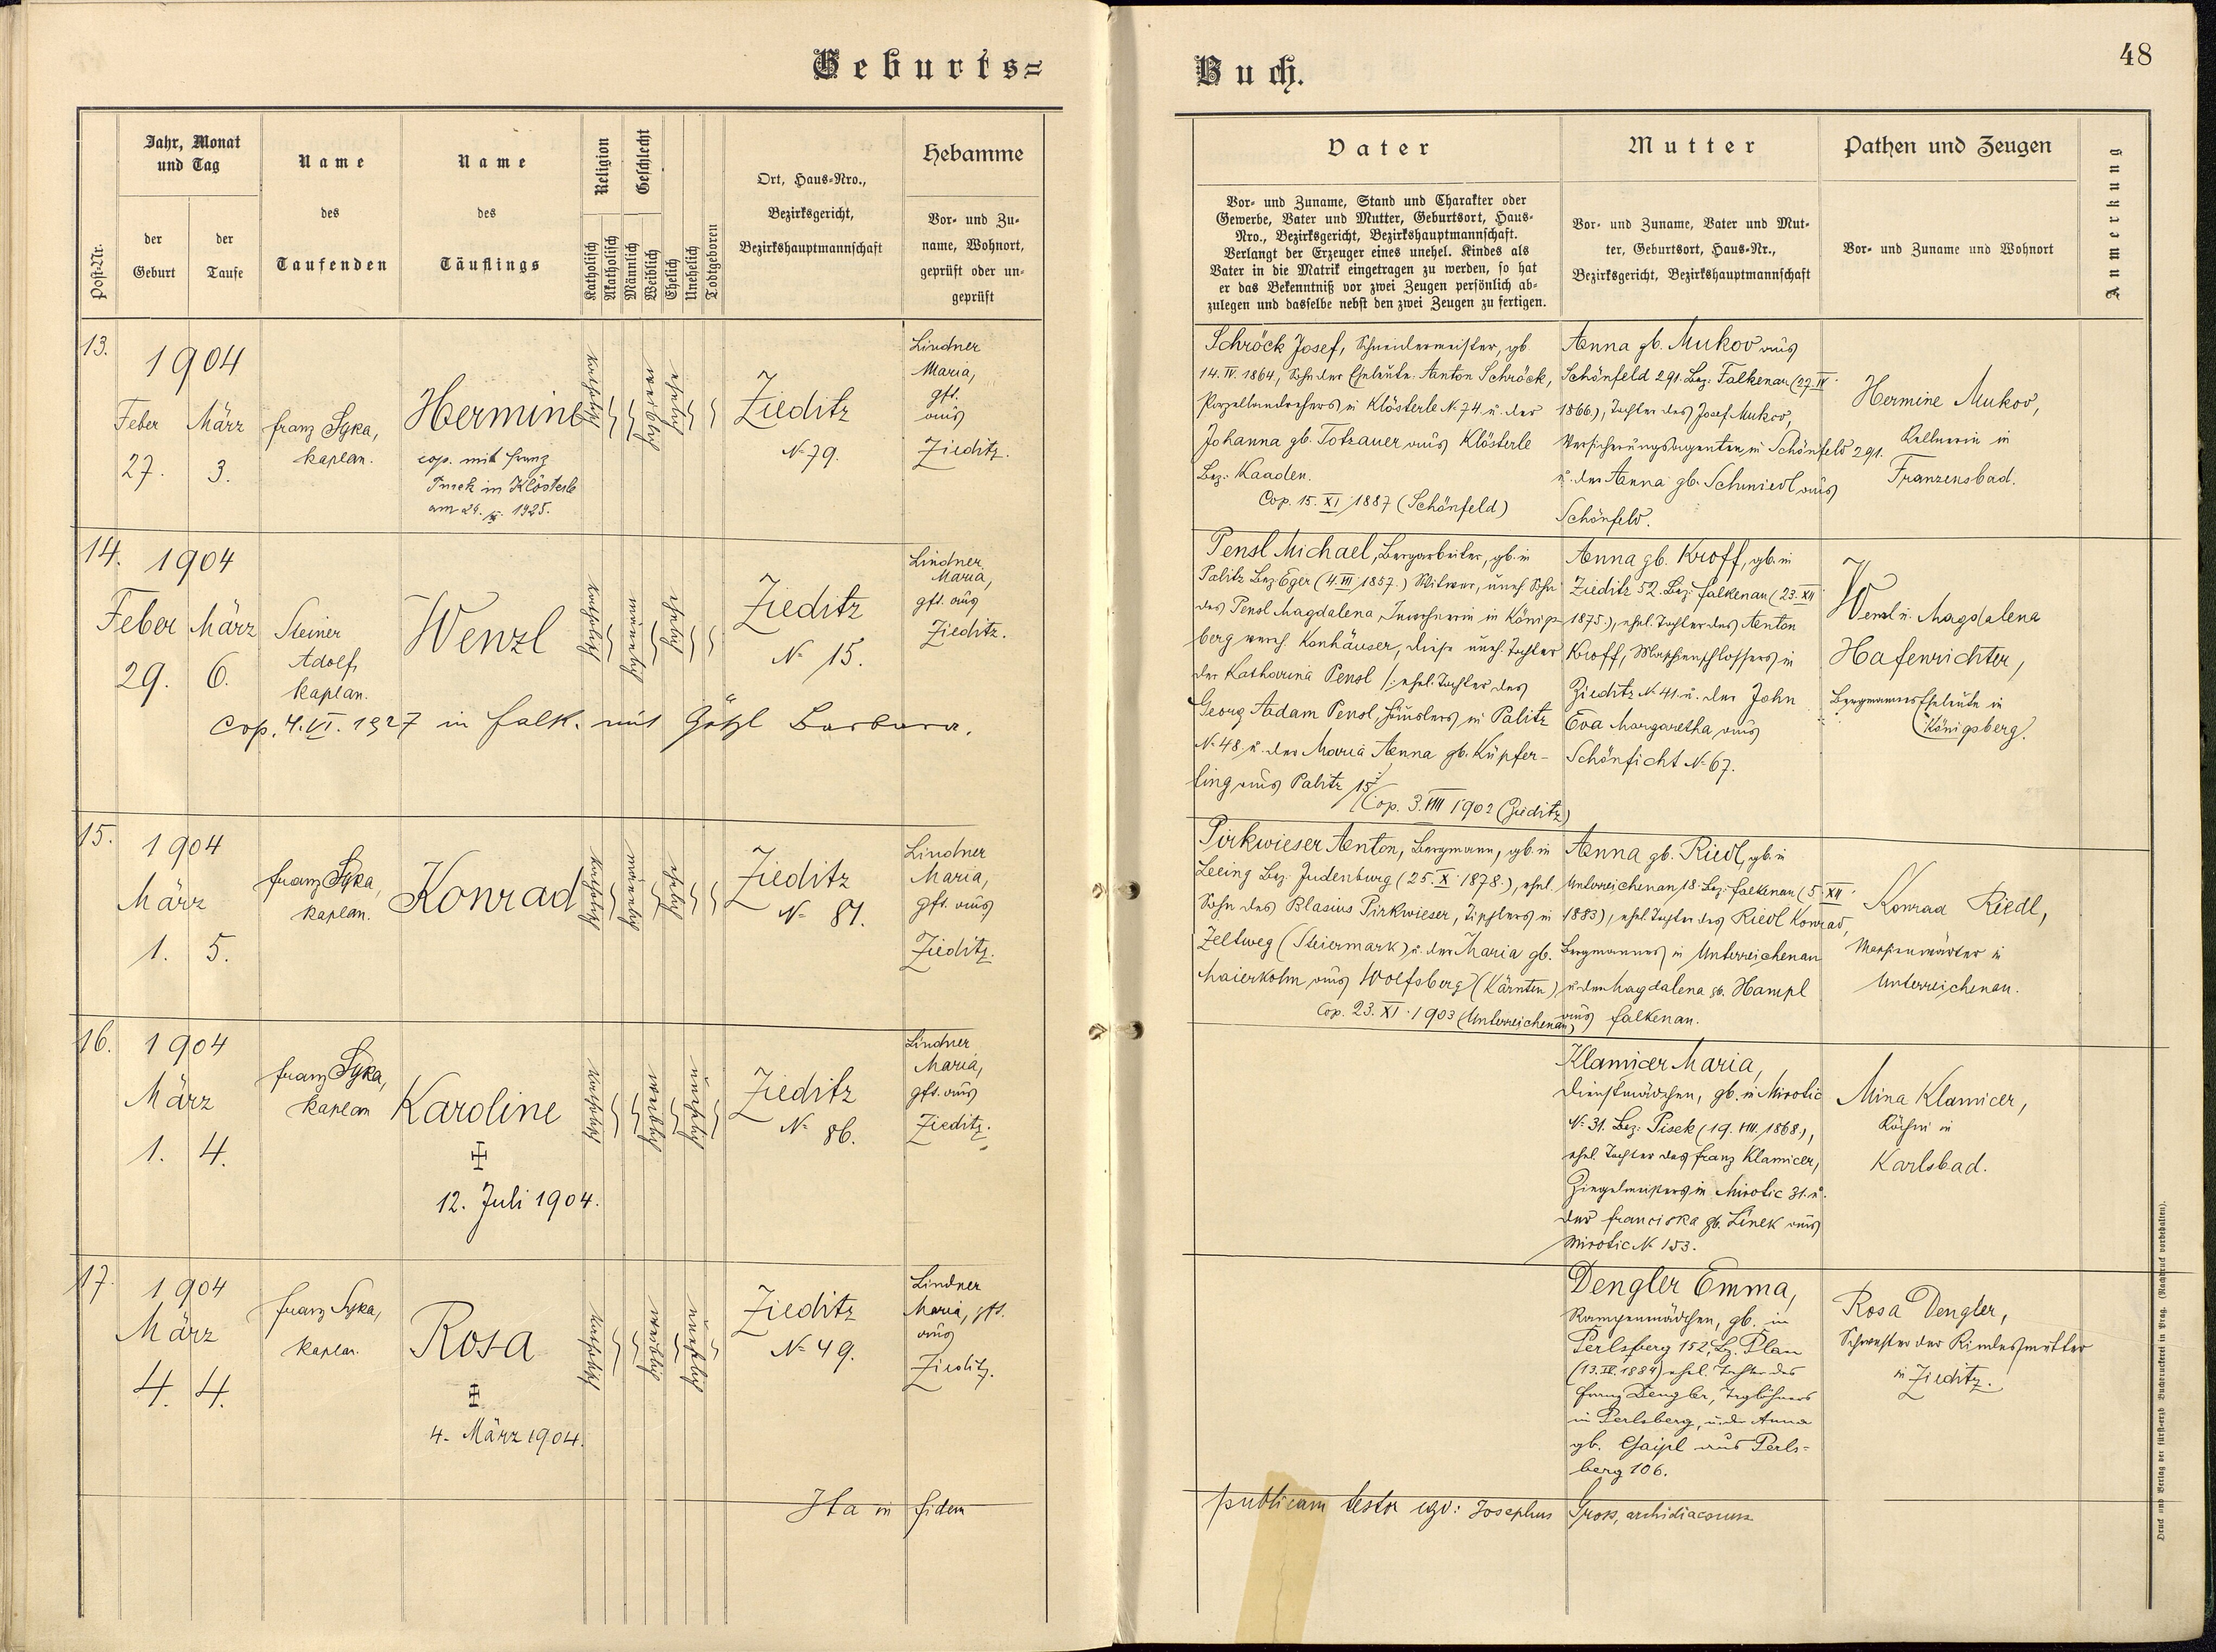 Geburts=
Buch.
48
Post-Nr.
Jahr, Monat
und Tag
der
Geburt
der
Taufe
Name
des
Taufenden
Name
des
Täuflings
Religion
Katholisch
Akatholisch
Geschlecht
Männlich
Weiblich
Ehelich
Unehelich
Todtgeboren
Ort, Haus-Nro.,
Bezirksgericht,
Bezirkshauptmannschaft
Hebamme
Vor- und Zu-
name, Wohnort,
geprüft oder un-
geprüft
Vater
Vor- und Zuname, Stand und Charakter oder
Gewerbe, Vater und Mutter, Geburtsort, Haus-
Nro., Bezirksgericht, Bezirkshauptmannschaft.
Verlangt der Erzeuger eines unehel. Kindes als
Vater in die Matrik eingetragen zu werden, so hat
er das Bekenntniß vor zwei Zeugen persönlich ab-
zulegen und dasselbe nebst den zwei Zeugen zu fertigen.
Mutter
Vor- und Zuname, Vater und Mut-
ter, Geburtsort, Haus-Nr.,
Bezirksgericht, Bezirkshauptmannschaft
Pathen und Zeugen
Vor- und Zuname und Wohnort
Anmerkung
13.
1904
Feber März
27. 3.
Franz Syka,
Kaplan.
Hermine
cop. mit Franz
in Klösterle
1925.
katholisch
weiblich
ehelich
Zieditz
No 79.
Lindner
Maria,
gft.
aus
Zieditz.
Schröck Josef, Schneidermeister, gb.
14. IV. 1864, Sohn der Eheleute Anton Schröck,
Porzellandrehers in Klösterle No 74 u. der
Johanna gb. Totzauer aus Klösterle
Bez. Kaaden.
Cop. 15. XI 1887 (Schönfeld)
Anna gb. Mukov aus
Schönfeld 291. Bez: Falkenau (27. IV.
1866.), Tochter des Josef Mukov,
Versicherungsagenten in Schönfeld 291.
u. der Anna gb. Schmiedl aus
Schönfeld.
Hermine Mukov,
Kellnerin in
Franzensbad.
14.
1904
Feber März
29. 6.
Steiner
Adolf,
Kaplan.
Wenzl
katholisch
männlich
ehelich
Zieditz
No 15.
Lindner
Maria,
gft. aus
Zieditz.
Cop. 4. VI. 1927 in Falk. mit Götzl Barbara.
Pensl Michael, Bergarbeiter, gb. in
Palitz Bez Eger (4. III 1857.) Witwer, uneh. Sohn
des Pensl Magdalena, Inwohnerin in Königs-
berg verh. Konhäuser, diese uneh. Tochter
der Katharina Pensl /: ehel. Tochter des
Georg Adam Pensl, Häuslers in Palitz
No 48 u. der Maria Anna gb. Küpfer-
ling aus Palitz 15
Cop. 3. VIII 1902 (Zieditz)
Anna gb. Kroff, gb. in
Zieditz 52. Bez: Falkenau (23. XII
1875.), ehel. Tochter des Anton
Kroff, Maschinschlossers in
Zieditz No 41. u. der John
Eva Margaretha aus
Schönficht No 67.
Wenzl u. Magdalena
Hafenrichter,
Bergmannseheleute in
Königsberg.
15.
1904
März
1. 5.
Franz Syka,
Kaplan.
Konrad
katholisch
männlich
ehelich
Zieditz
No 81.
Lindner
Maria,
gft. aus
Zieditz.
Pirkwieser Anton, Bergmann, gb. in
Leeing Bez. Judenburg (25. X. 1878.), ehel.
Sohn des Blasius Pirkwieser, Tischlers in
Zeltweg (Steiermark) u. der Maria gb.
Maierkolm aus Wolfsberg (Kärnten)
Cop. 23. XI. 1903 (Unterreichenau)
Anna gb. Riedl, gb. in
Unterreichenau 18. Bez: Falkenau (5. XII
1883), ehel. Tochter des Riedl Konrad,
Bergmannes in Unterreichenau
u. der Magdalena gb. Hampl
aus Falkenau.
Konrad Riedl,
Maschinwärter in
Unterreichenau.
16.
1904
März
1. 4.
Franz Syka,
Kaplan
Karoline
12. Juli 1904.
katholisch
weiblich
unehelich
Zieditz
No 86.
Lindner
Maria,
gft. aus
Zieditz.
Klamicer Maria,
Dienstmädchen, gb. in Mirotic
No 31. Bez: Pisek (19. VIII. 1868.),
ehel. Tochter des Franz Klamicer,
Ziegelmeisters in Mirotic 31. u.
der Franciska gb. Linek aus
Mirotic No 153.
Mina Klamicer,
Köchin in
Karlsbad.
17.
1904
März
4. 4.
Franz Syka,
Kaplan.
Rosa
4. März 1904.
katholisch
weiblich
unehelich
Zieditz
No 49.
Lindner
Maria, gft.
aus
Zieditz.
Dengler Emma,
gb. in
Perlsberg 152, Bz. Plan
(13. IX. 1884) ehel. Tochter des
Franz Dengler, Taglöhners
in Perlsberg, u. der Anna
gb. aus Perls-
berg 106.
Rosa Dengler,
Schwester der Kindesmutter
in Zieditz.
Ita in fidem
publicam testor ego: Josephus archidiaconus
Druck und Verlag der fürst-erzb Buchdruckerei in Prag. (Nachdruck vorbehalten).